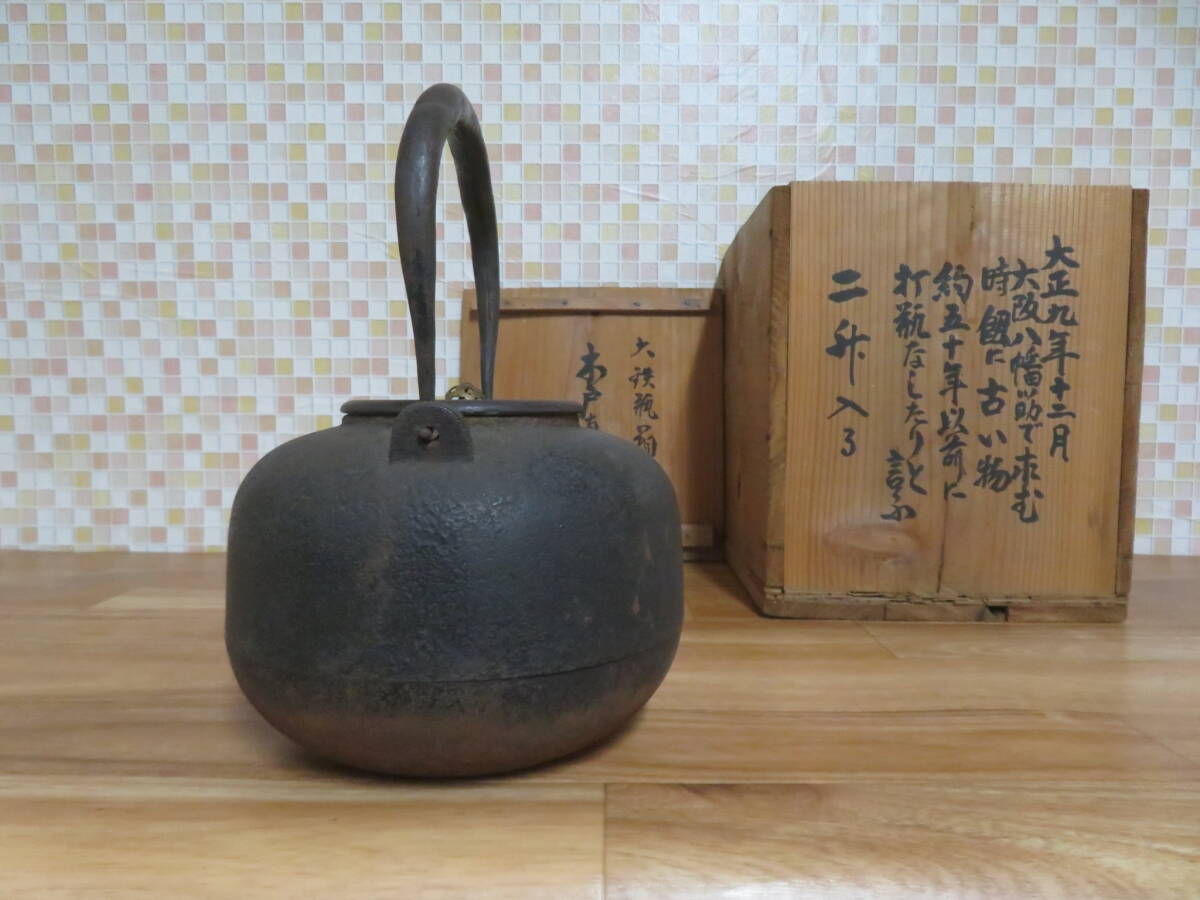 大正九年十二月
大阪八幡筋で求む
時価に古い物
約五十年以前に
打瓶なしたりと
言ふ
二升入る
大鉄瓶箱
木戸